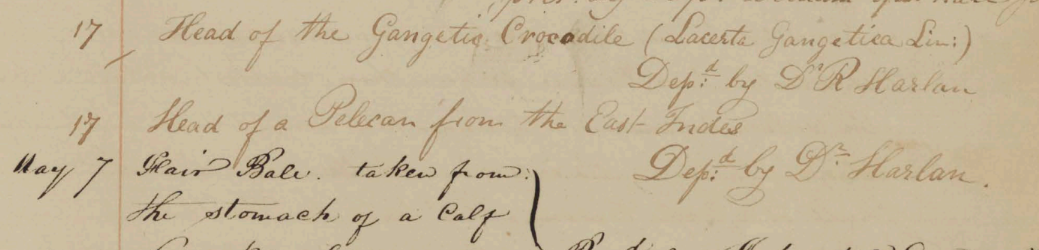 17 Head of the Gangetic Crocodile (Lacerta Gangetica Lin:)
Dep:d by Dr R Harlan
17 Head of a Pelecan from the East Indes
Dep:d by Dr Harlan.
May 7 Hair Bale. taken from
the stomach of a Calf